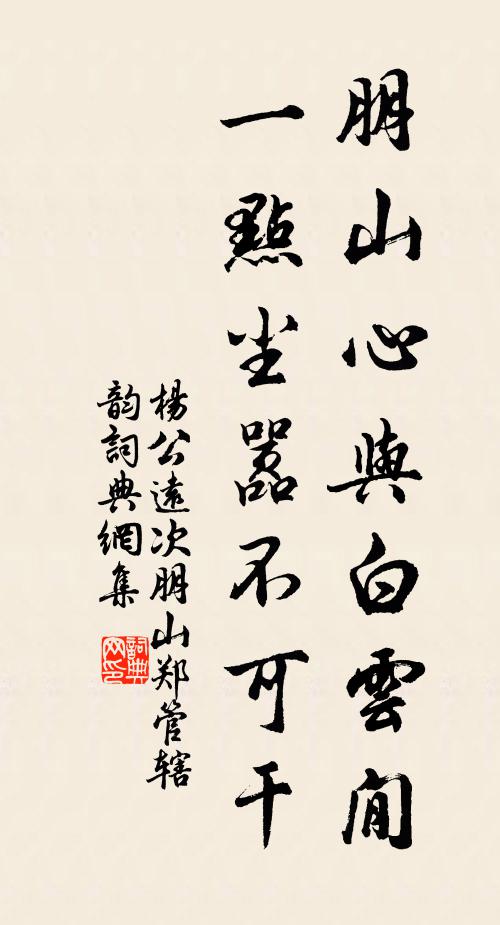 朋山心與白雲閒
一點尘囂不可干
楊公遠次朋山郑管辖
韵詞典網集
詞典
网印